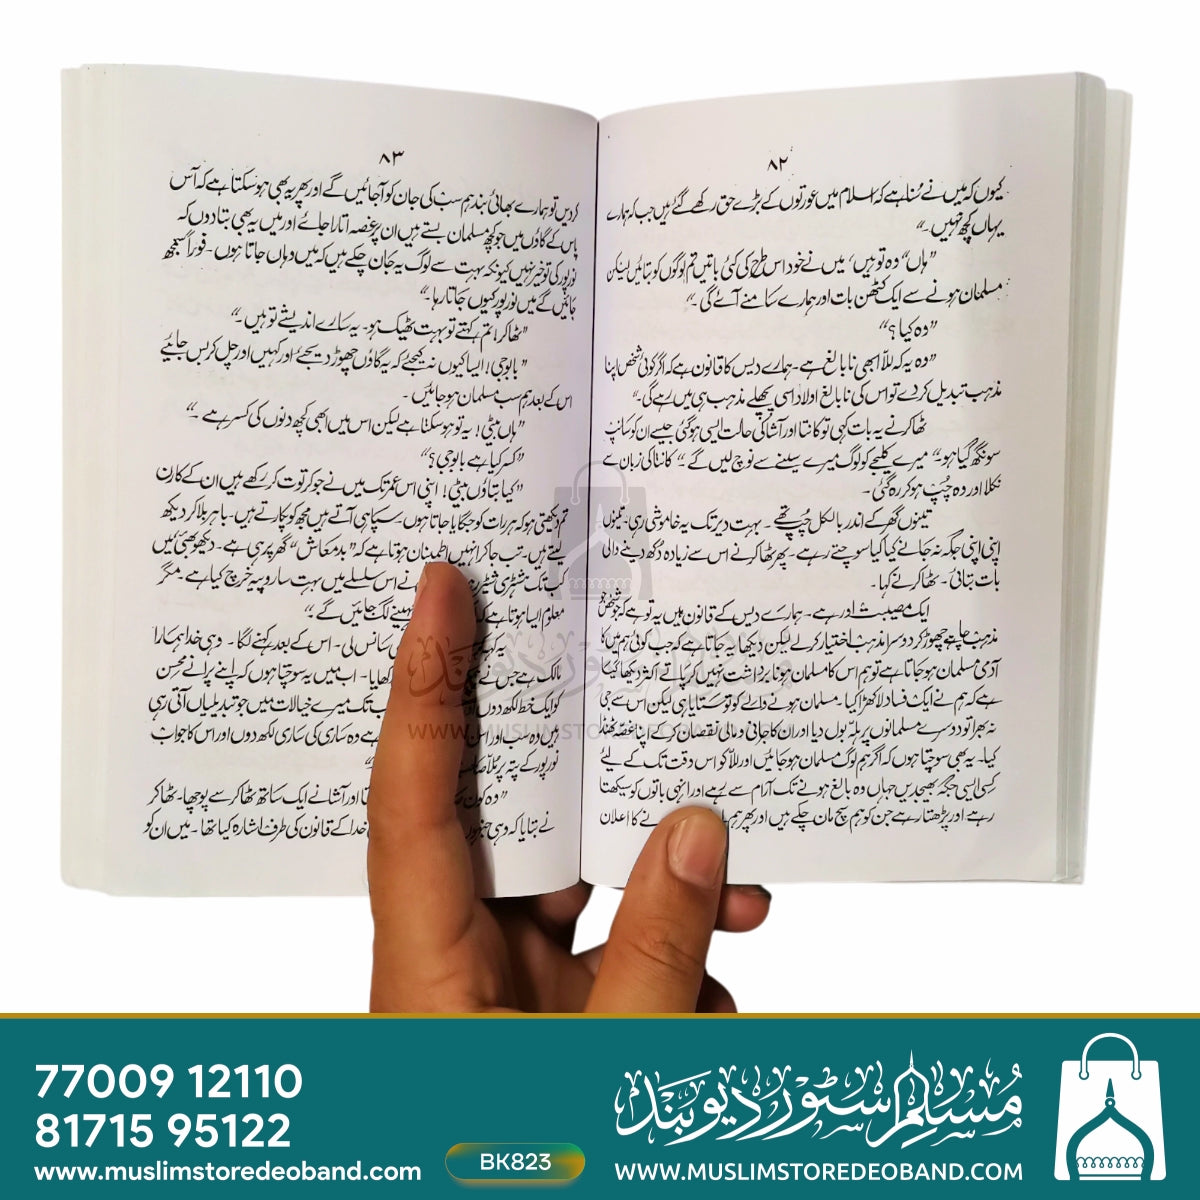 ۸۲
کیوں کہ میں نے سُنا ہے کہ اسلام میں عورتوں کے بڑے حق رکھے گئے ہیں جب کہ ہمارے
یہاں کچھ نہیں۔"
"ہاں" وہ تو ہیں، میں نے خود اس طرح کی کئی باتیں تم لوگوں کو بتائیں لیکن
مسلمان ہونے سے ایک کٹھن بات اور ہمارے سامنے آئے گی۔"
"وہ کیا؟"
"وہ یہ کہ للّا ابھی نابالغ ہے۔ ہمارے دیس کا قانون ہے کہ اگر کوئی شخص اپنا
مذہب تبدیل کر دے تو اس کی نابالغ اولاد اسی پچھلے مذہب ہی میں رہے گی۔"
ٹھاکر نے یہ بات کہی تو کانتا اور آشا کی حالت ایسی ہو گئی جیسے ان کو سانپ
سونگھ گیا ہو۔" میرے کلیجے کو لوگ میرے سینے سے نوچ لیں گے۔" کانتا کی زبان سے
نکلا اور وہ چُپ ہو کر رہ گئی۔
تینوں گھر کے اندر بالکل چُپ تھے۔ بہت دیر تک یہ خاموشی رہی۔ تینوں
اپنی اپنی جگہ نہ جانے کیا کیا سوچتے رہے۔ پھر ٹھاکر نے اس سے زیادہ دُکھ دینے والی
بات بتائی۔ ٹھاکر نے کہا۔
ایک مصیبت اور ہے۔ ہمارے دیس کے قانون میں یہ تو ہے کہ جو شخص جو
مذہب چاہے چھوڑ کر دوسرا مذہب اختیار کرلے لیکن دیکھا یہ جاتا ہے کہ جب کوئی ہم میں کا
آدمی مسلمان ہو جاتا ہے تو ہم اس کا مسلمان ہونا برداشت نہیں کر پاتے اکثر دیکھا گیا
ہے کہ ہم نے ایک فساد لا کھڑا کیا۔ مسلمان ہونے والے کو تو ستایا ہی لیکن اس سے جی
نہ بھرا تو دوسرے مسلمانوں پر ہلّہ بول دیا اور ان کا جانی و مالی نقصان کر کے اپنا غصّہ ٹھنڈا
کیا۔ یہ بھی سوچتا ہوں کہ اگر ہم لوگ مسلمان ہو جائیں اور للّا کو اس وقت تک کے لیئے
کسی ایسی جگہ بھیجدیں جہاں وہ بالغ ہونے تک آرام سے رہے اور انہی باتوں کو سیکھتا
رہے اور پڑھتا رہے جن کو ہم سچ مان چکے ہیں اور پھر ہم نے کا اعلان
۸۳
کردیں تو ہمارے بھائی بند ہم سب کی جان کو آجائیں گے اور پھر یہ بھی ہو سکتا ہے کہ آس
پاس کے گاؤں میں جو کچھ مسلمان بستے ہیں ان پر غصہ اتارا جائے اور میں یہ بھی بتا دوں کہ
نورپور کی تو خیر نہیں کیونکہ بہت سے لوگ یہ جان چکے ہیں کہ میں وہاں جاتا ہوں۔ فوراً سمجھ
جائیں گے میں نورپور کیوں جاتا رہا۔"
"ٹھاکر! تم کہتے تو بہت ٹھیک ہو۔ یہ سارے اندیشے تو ہیں۔"
"بابو جی! ایسا کیوں نہ کیجئے کہ یہ گاؤں چھوڑ دیجئے اور کہیں اور چل کر بس جائیے
اس کے بعد ہم سب مسلمان ہو جائیں۔
"ہاں بیٹی! یہ تو ہو سکتا ہے لیکن اس میں ابھی کچھ دنوں کی کسر ہے۔"
"کسر کیا ہے بابو جی؟"
"کیا بتاؤں بیٹی! اپنی اس عمر تک میں نے جو کرتوت کر رکھے ہیں ان کے کارن
تم دیکھتی ہو کہ ہر رات کو جگایا جاتا ہوں۔ سپاہی آتے ہیں مجھ کو پکارتے ہیں۔ باہر بلا کر دیکھ
لیتے ہیں۔ تب جاکر انہیں اطمینان ہوتا ہے کہ "بدمعاش" گھر پر ہی ہے۔ دیکھو بھئی میں
کب تک نے اس سلسلے میں بہت سا روپیہ خرچ کیا ہے۔ مگر
معلوم ایسا ہوتا ہے مہینے لگ جائیں گے۔"
یہ کہہ سانس لی۔ اس کے بعد کہنے لگا۔ وہی خدا ہمارا
مالک ہے جس نے کھایا۔ اب میں یہ سوچتا ہوں کہ اپنے پرانے محسن
کو ایک خط لکھ دوں اور تک میرے خیالات میں جو تبدیلیاں آتی رہی
ہیں وہ سب اور ہے وہ ساری کی ساری لکھ دوں اور اس کا جواب
نورپور کے پتہ پر
"وہ کون اور آشا نے ایک ساتھ ٹھاکر سے پوچھا۔ ٹھاکر
نے بتایا کہ وہی خدا کے قانون کی طرف اشارہ کیا تھا۔ میں ان کو
مسلم سٹور دیوبند
WWW.MUSLIMSTOREDEOBAND.COM
77009 12110
81715 95122
www.muslimstoredeoband.com
BK823
مُسلم سٹور دیوبند
WWW.MUSLIMSTOREDEOBAND.COM